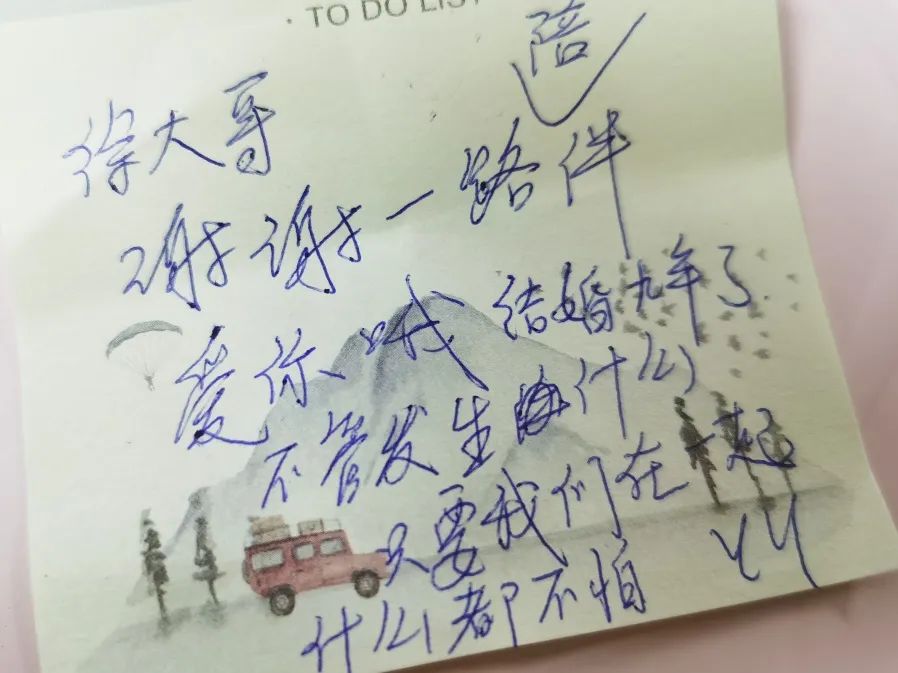 · TO DO LIST
陪
徐大哥
谢谢一路伴
爱你哦 结婚九年了
不管发生什么
只要我们在一起
什么都不怕 YY